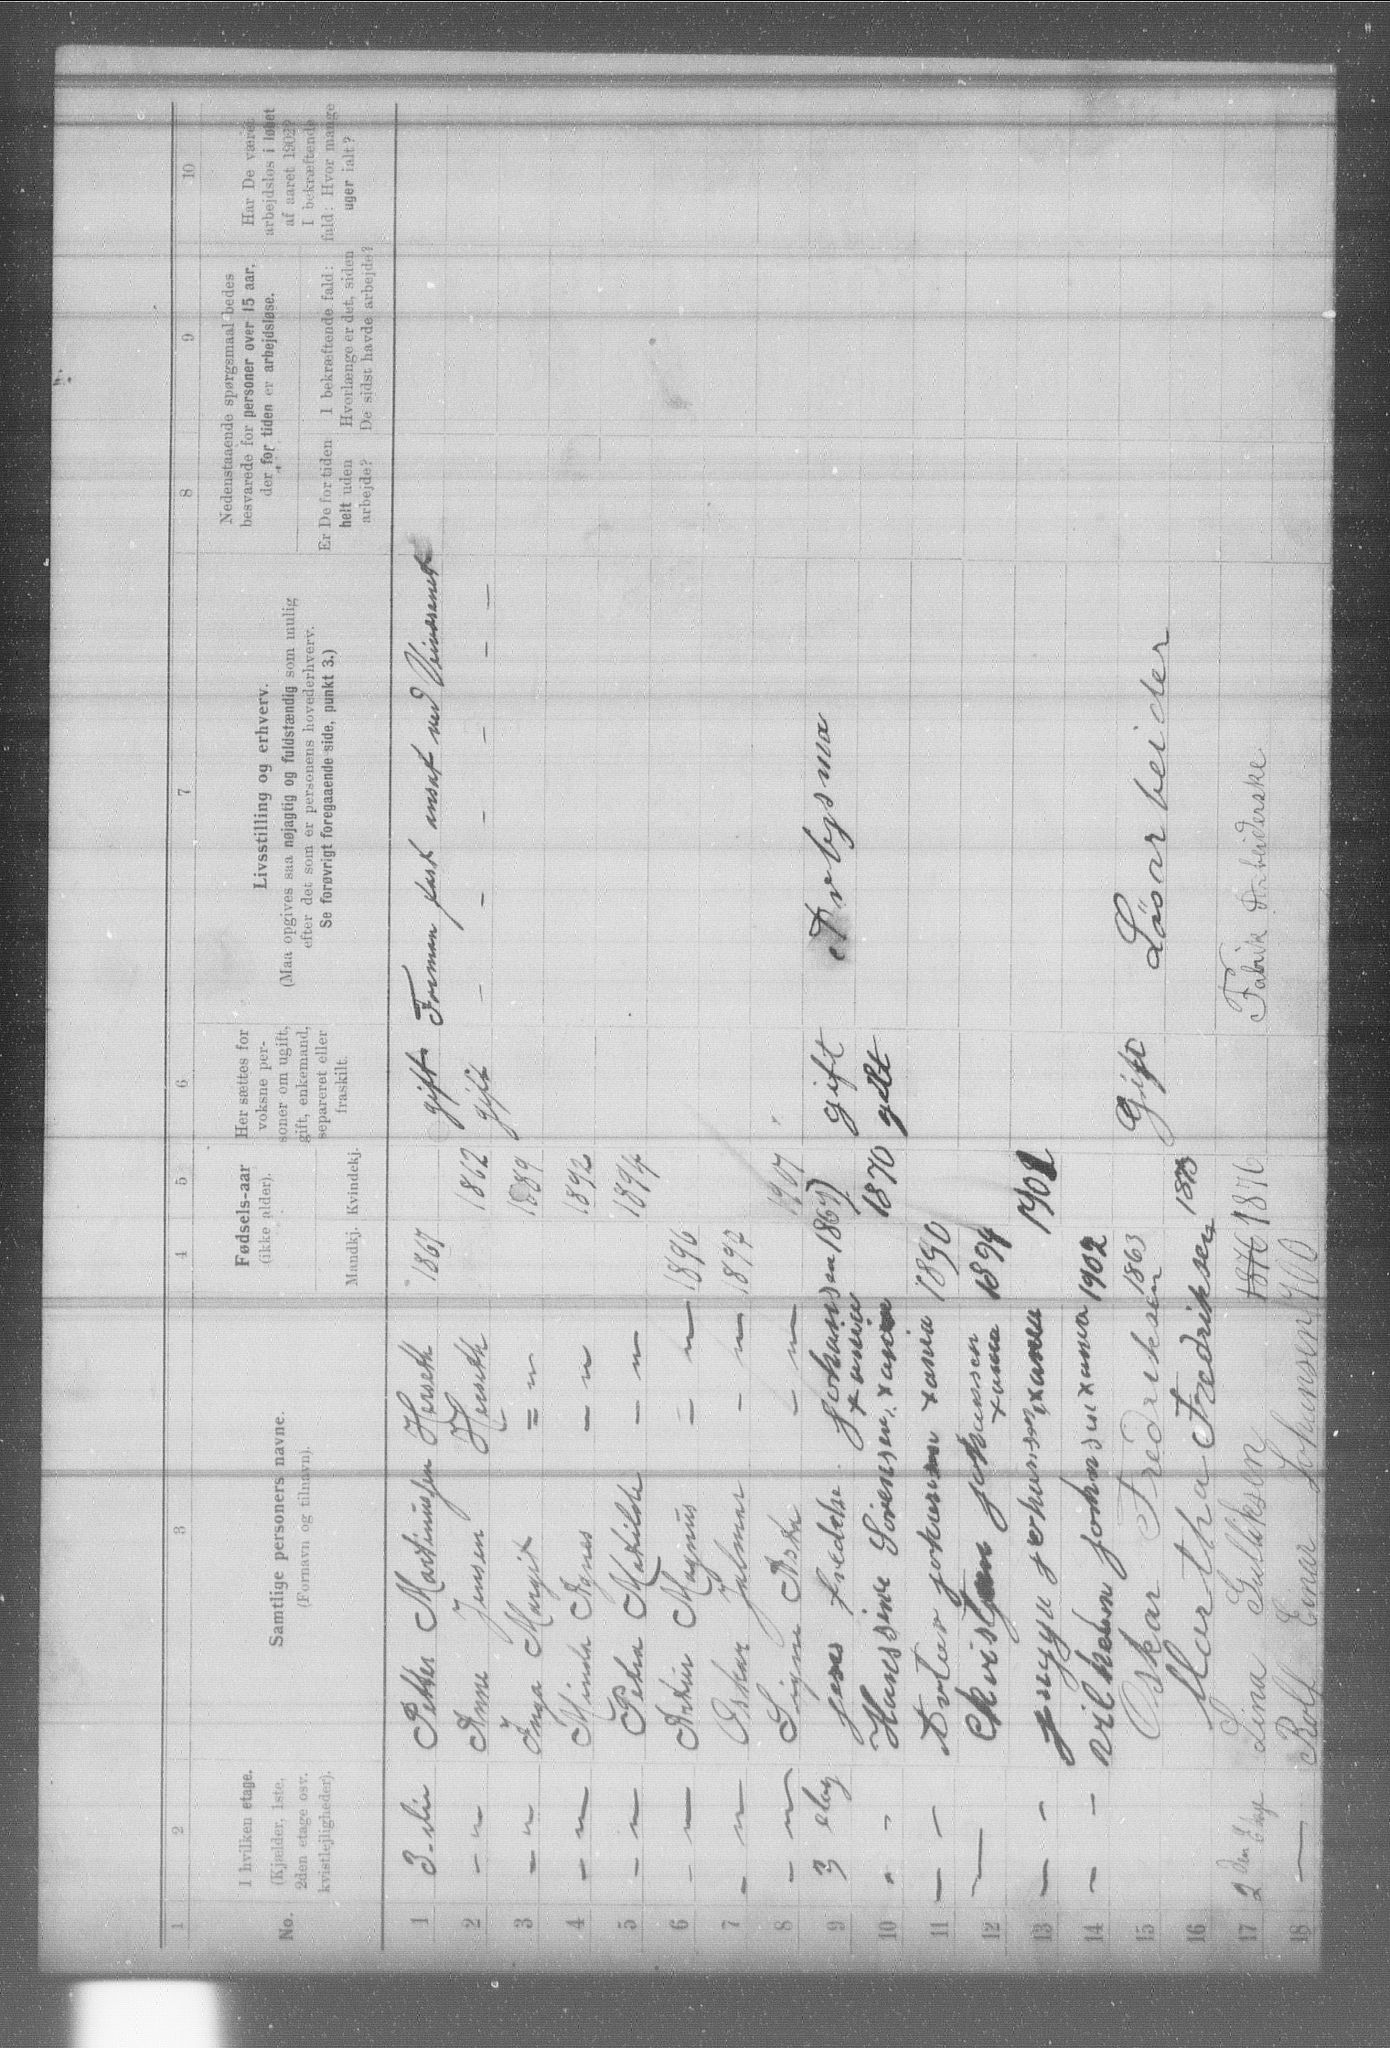 1 2 3 4 5 6 7 8 9 10
No.
I hvilken etage.
(Kjælder, 1ste,
2den etage osv.
kvistlejligheder).
Samtlige personers navne.
(Fornavn og tilnavn).
Fødsels-aar
(ikke alder).
Mandkj. Kvindekj.
Her sættes for
voksne per-
soner om ugift,
gift, enkemand,
separeret eller
fraskilt.
Livsstilling og erhverv.
(Maa opgives saa nøjagtig og fuldstændig som mulig
efter det som er personens hovederhverv.
Se forøvrigt foregaaende side, punkt 3.)
Nedenstaaende spørgsmaal bedes
besvarede for personer over 15 aar,
der for tiden er arbejdsløse.
Er De for tiden
helt uden
arbejde?
I bekræftende fald:
Hvorlænge er det, siden
De sidst havde arbejde?
Har De været
arbejdsløs i løbet
af aaret 1902?
I bekræftende
fald: Hvor mange
uger ialt?
1 3- Petter Martinussen 1867 gift Forman fast ansat ved
2 - " - Anne Jensen 1862 gift - - - - - -
3 - " - Inga Margit = " = 1889
4 - " - Minda Agnes - " - 1892
5 - " - Petra Matilde - " - 1894
6 - " - Magnus - " - 1896
7 - " - Oskar Julmer - " - 1897
8 - " - Signe Asta - " - 1901
9 3 Jens Johansen xania gift
10 " - Hansine Sørensen xania 1870
11 - - xania 1890
12 - johanssen xania 1894
13 - - xania 1901
14 - - vilhelm xania 1902
15 Oskar Fredriksen 1863 Gift Løsarbeider
16 Martha Fredriksen 1873
17 2 den Etage Lina Gulliksen 1876 1876 Fabrik Arbeiderske
18 - Rolf Einar Johansen 1900